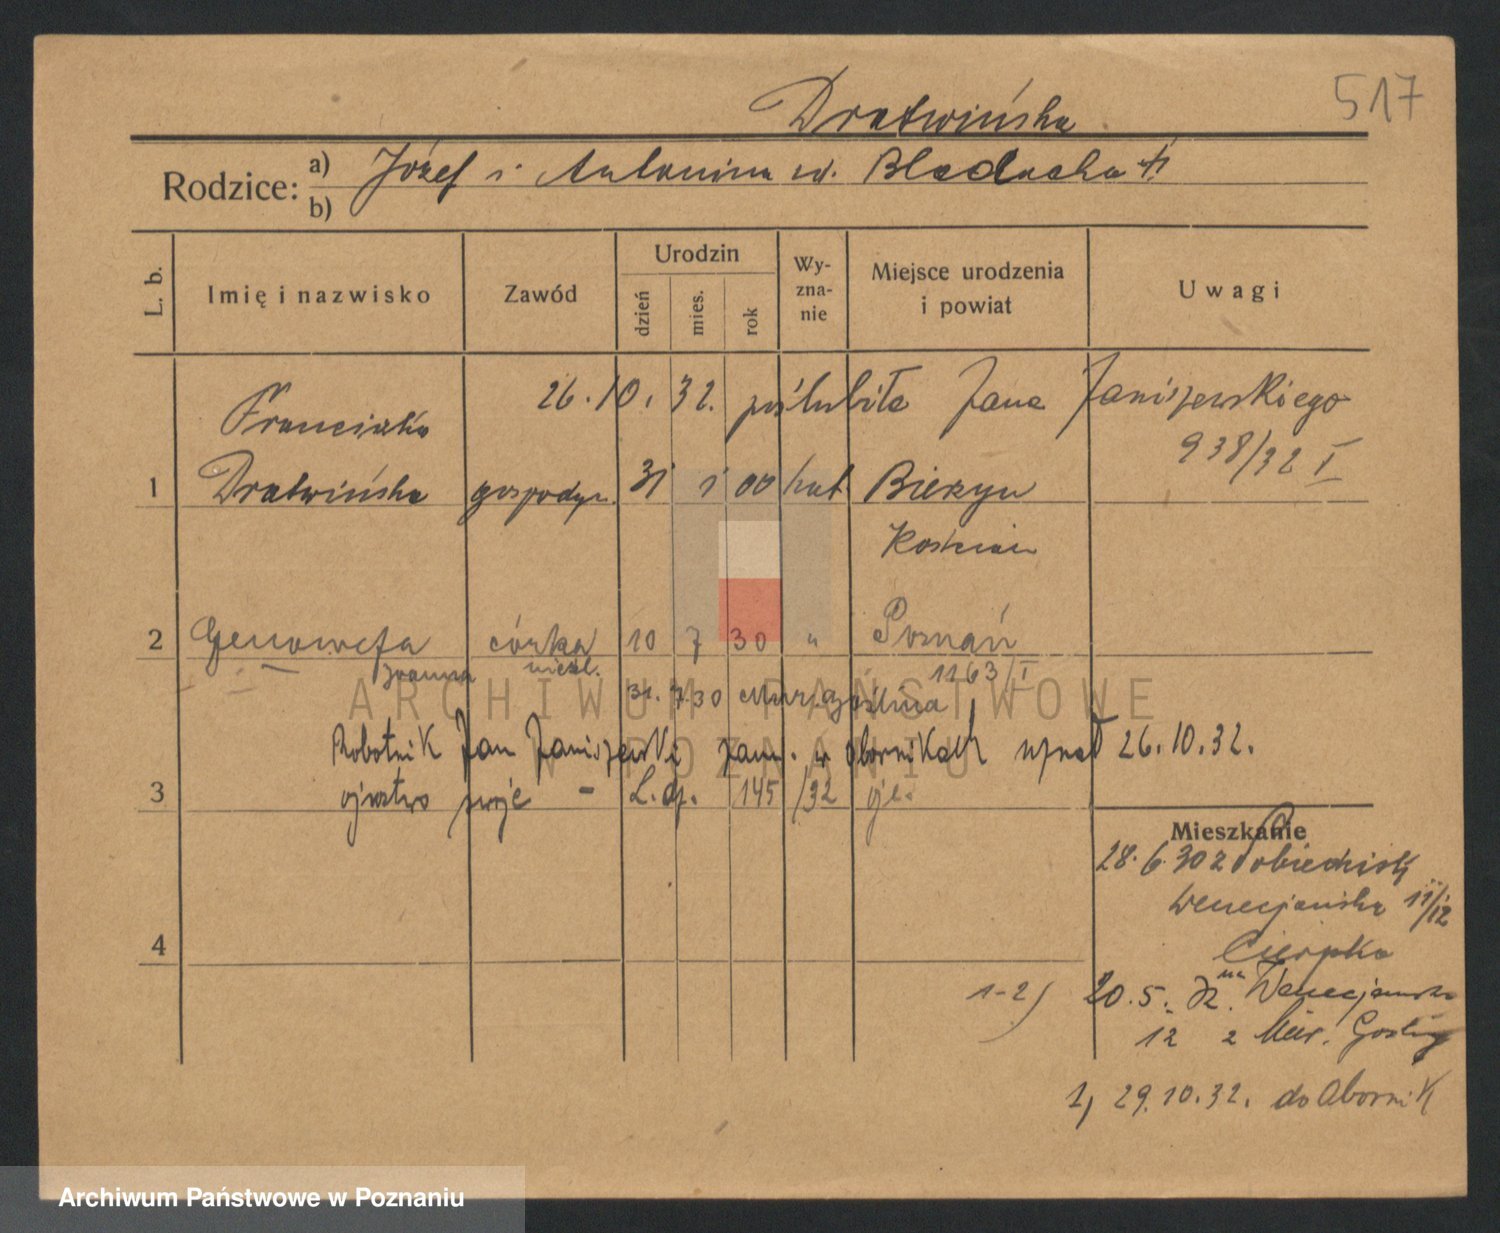 517
Dratwińska
Rodzice: a) Józef i Antonina zd. Bledacha
b)
L. b. Imię i nazwisko Zawód Urodzin dzień mies. rok Wy-zna-nie Miejsce urodzenia i powiat Uwagi
26.10.32. poślubiła Jana Janiszewskiego
Franciszka
938/32 I
1 Dratwińska gospodyn. 31 1 00 kat Bieżyn
Kościan
2 Genowefa córka 10 7 30 " Poznań
Joanna nieśl. 1163/I
31. 7.30
Robotnik Jan Janiszewski zam. w Obornikach uznał 26.10.32.
3 ojcostwo swoje - L. dz. 145/32
Mieszkanie
28.6.30 z Pobiedzisk
Wenecjańska 11/12
4 Cierpka
1-2) 20.5.32. na Wenecjańska
12 z
1) 29.10.32. do Obornik
ARCHIWUM PAŃSTWOWE
W POZNANIU
Archiwum Państwowe w Poznaniu